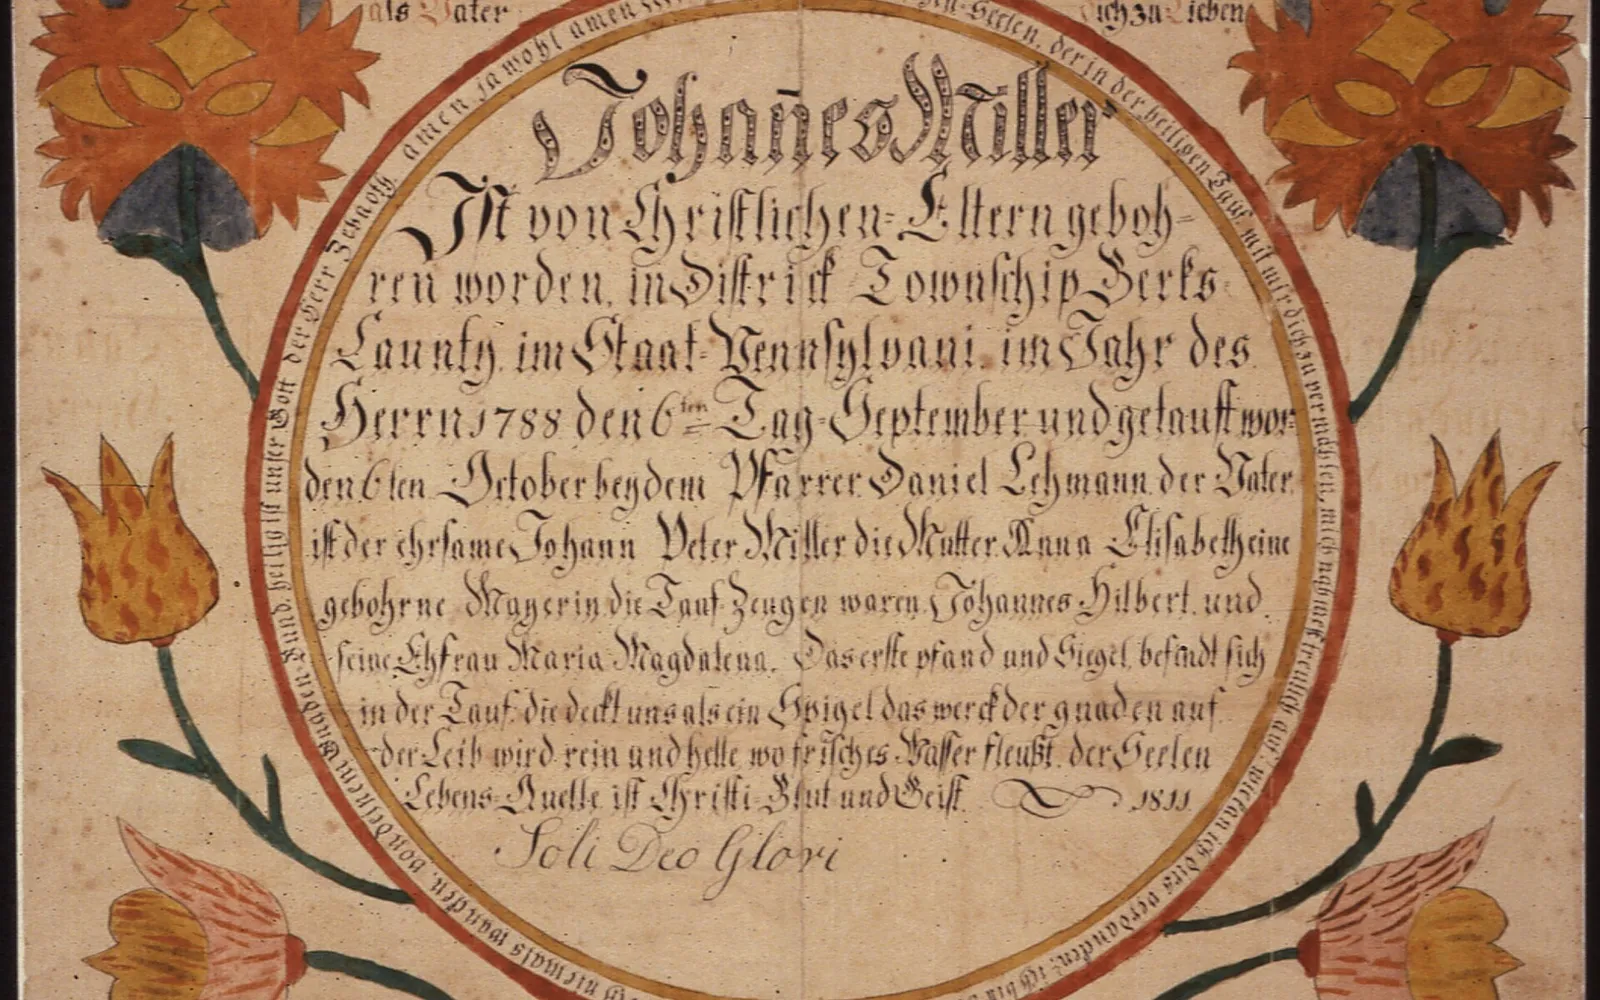 als Vater
ich zu Lieben
Johañes Miller
Ist von Christlichen Eltern geboh-
ren worden, in District Townschip Berks
Caunty, im Staat Pennsylvani, im Jahr des
Herrn 1788 den 6ten Tag September und getauft wor-
den 6ten October bey dem Pfarrer Daniel Lehmann der Vater
ist der ehrsame Johann Peter Miller die Mutter Anna Elisabeth eine
gebohrne Mayerin die Tauf Zeugen waren Johannes Hilbert und
seine Ehfrau Maria Magdalena. Das erste pfand und Siegel, befindt sich
in der Tauf. die deckt uns als ein Spigel das werck der gnaden auf
der Leib wird rein und helle wo frisches Wasser fleußt. der Seelen
Lebens Quelle ist Christi Blut und Geist. 1811
Soli Deo Glori
Seelen, der in der heiligen Tauf mit mir dich zu vermählen, mich
von deinem Gnaden Bund. heilig ist unser Gott der Herr Zebaoth. amen ja wohl amen